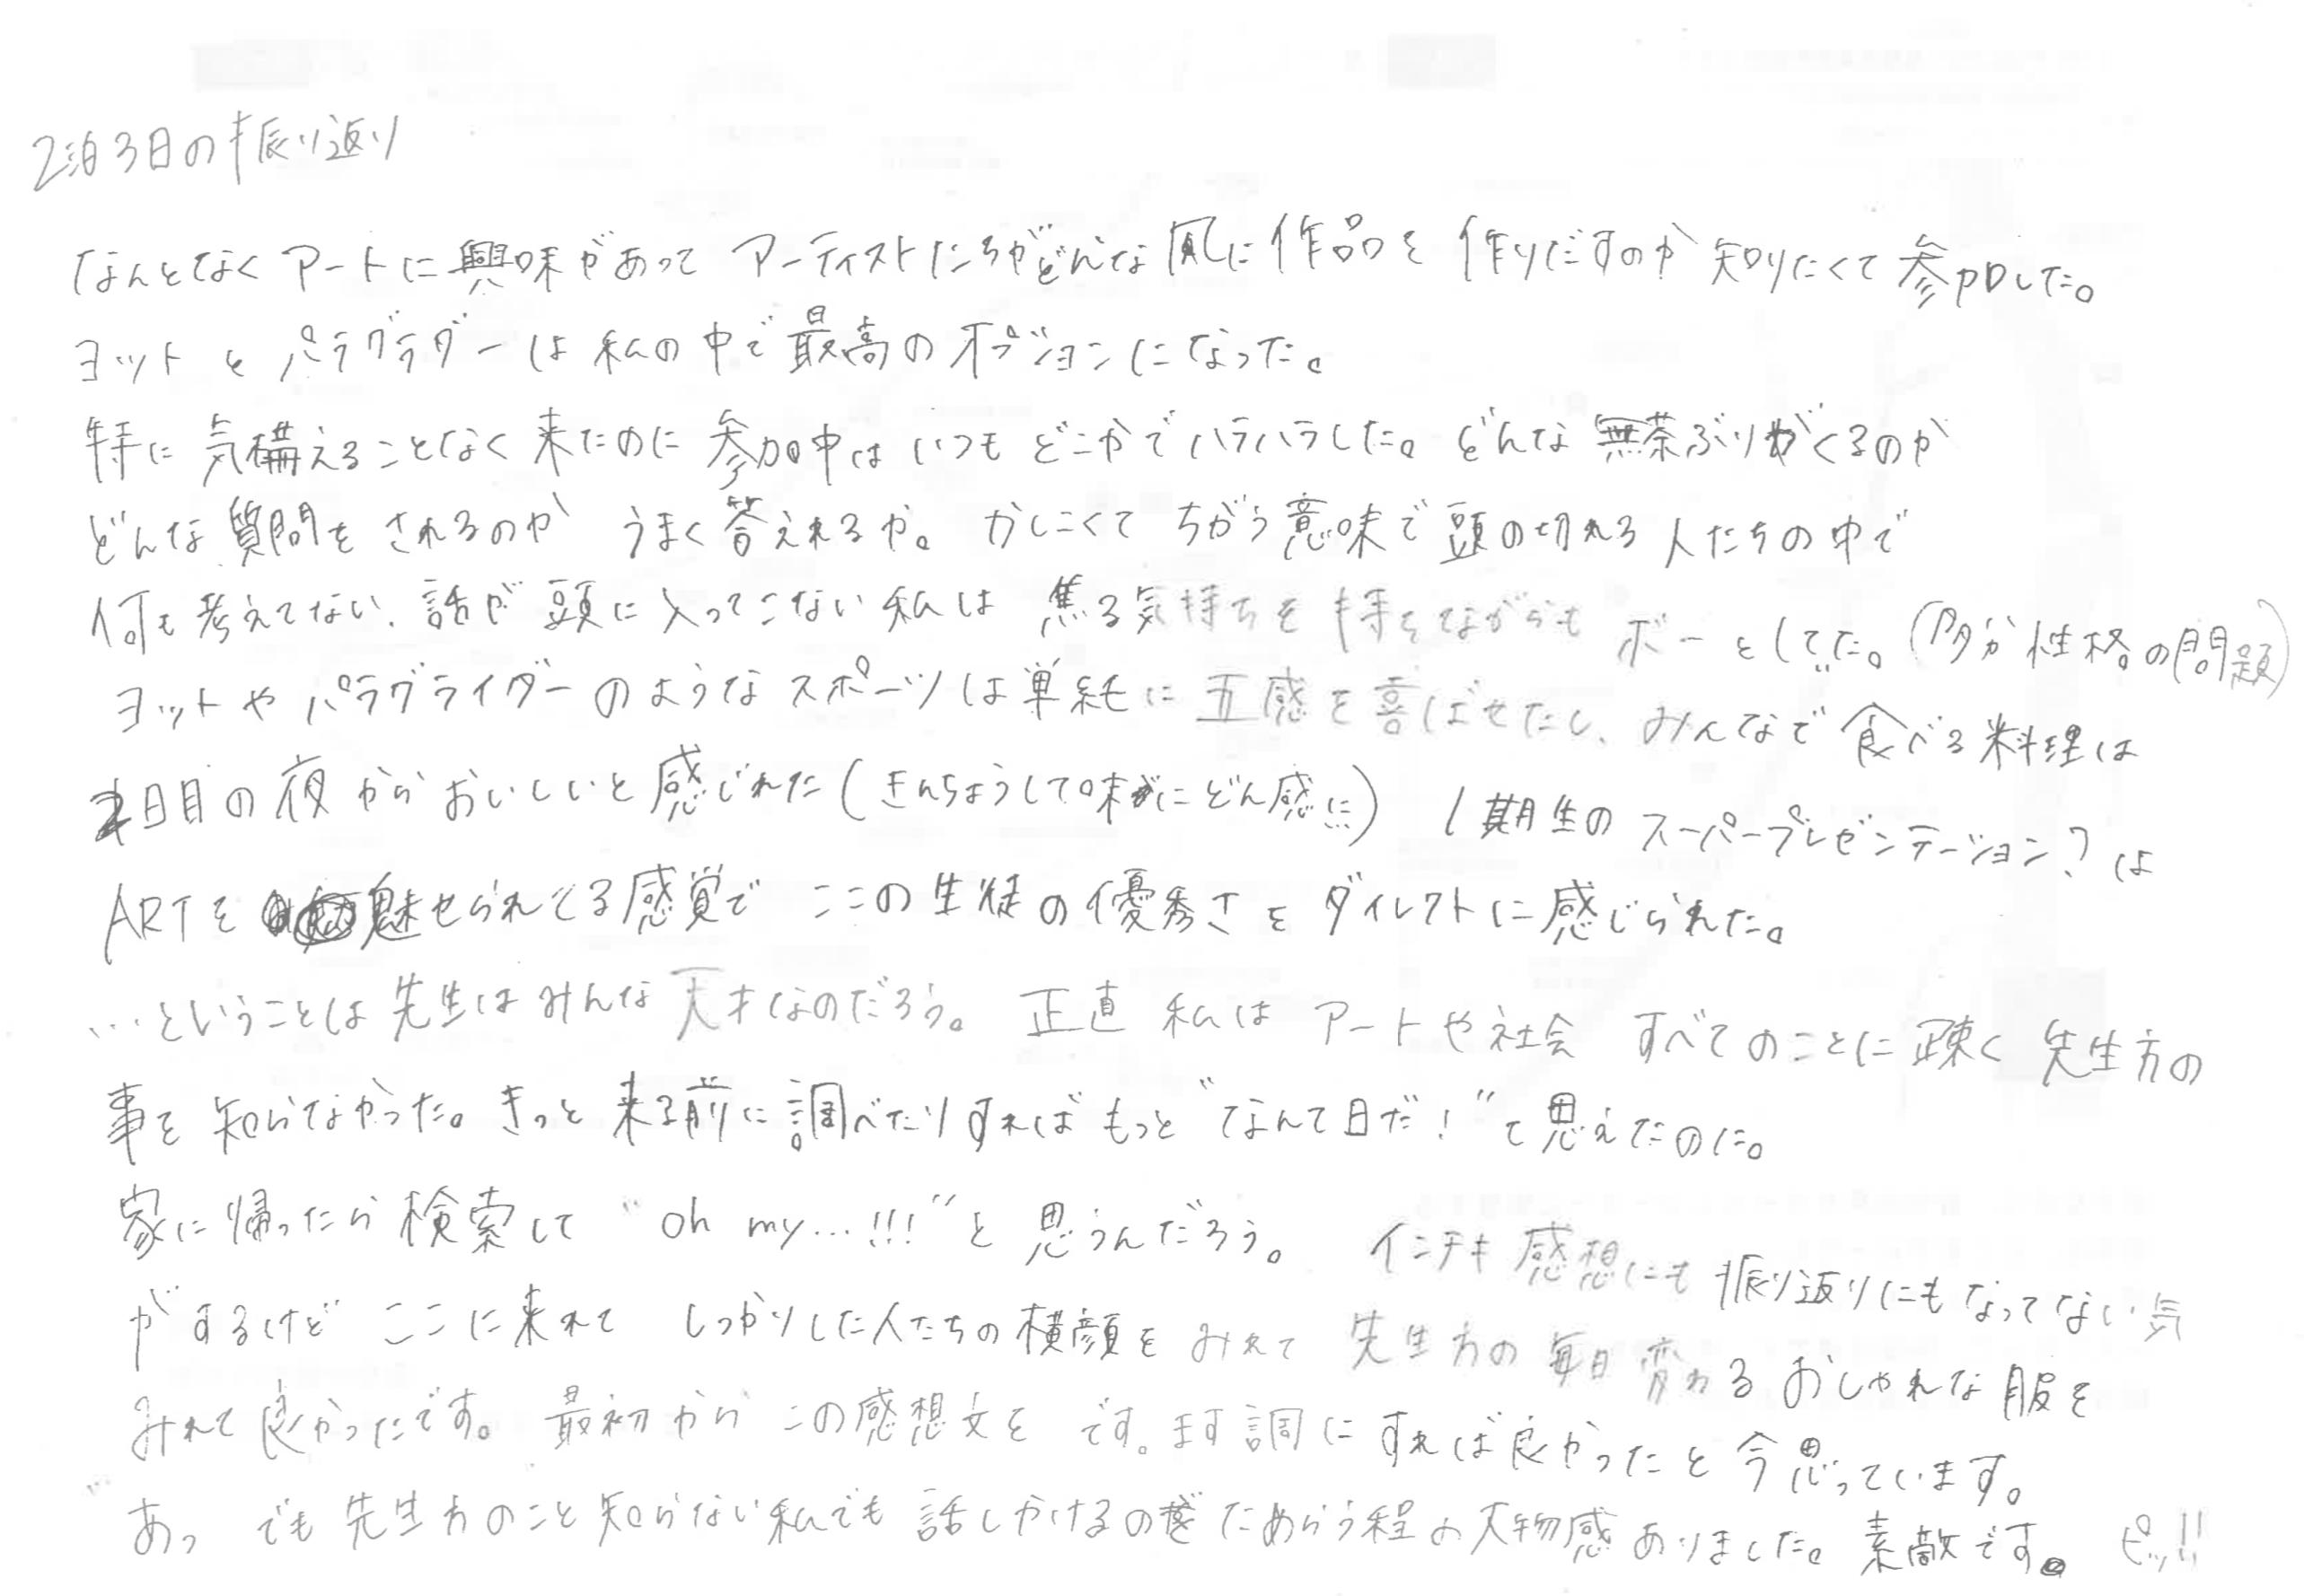 2泊3日の振り返り
なんとなくアートに興味があって アーティストたちがどんな風に作品を作りだすのか知りたくて参加した。
ヨットとパラグラダーは私の中で最高のオプションになった。
特に気構えることなく来たのに参加中はいつもどこかでハラハラした。どんな無茶ぶりがくるのか
どんな質問をされるのか うまく答えれるか。かしこくてちがう意味で頭の切れる人たちの中で
何も考えてない、話が頭に入ってこない私は焦る気持ちを持ちながらもボーとしてた。(多分性格の問題)
ヨットやパラグライダーのようなスポーツは単純に五感を喜ばせたし、みんなで食べる料理は
2日目の夜からおいしいと感じれた(きんちょうして味にどん感に) 1期生のスーパープレゼンテーション?は
ARTを魅せられてる感覚で ここの生徒の優秀さをダイレクトに感じられた。
…ということは先生はみんな天才なのだろう。正直 私はアートや社会 すべてのことに疎く先生方の
事を知らなかった。きっと来る前に調べたりすればもっと“なんて日だ!”て思えたのに。
家に帰ったら検索して“oh my...!!!”と思うんだろう。 インチキ感想にも振り返りにもなってない気
がするけど ここに来れて しっかりした人たちの横顔をみれて 先生方の毎日変わるおしゃれな服を
みれて良かったです。最初からこの感想文を です。ます調にすれば良かったと今思っています。
あっ でも先生方のこと知らない私でも話しかけるのをためらう程の大物感ありました。素敵です。 ピッ!!